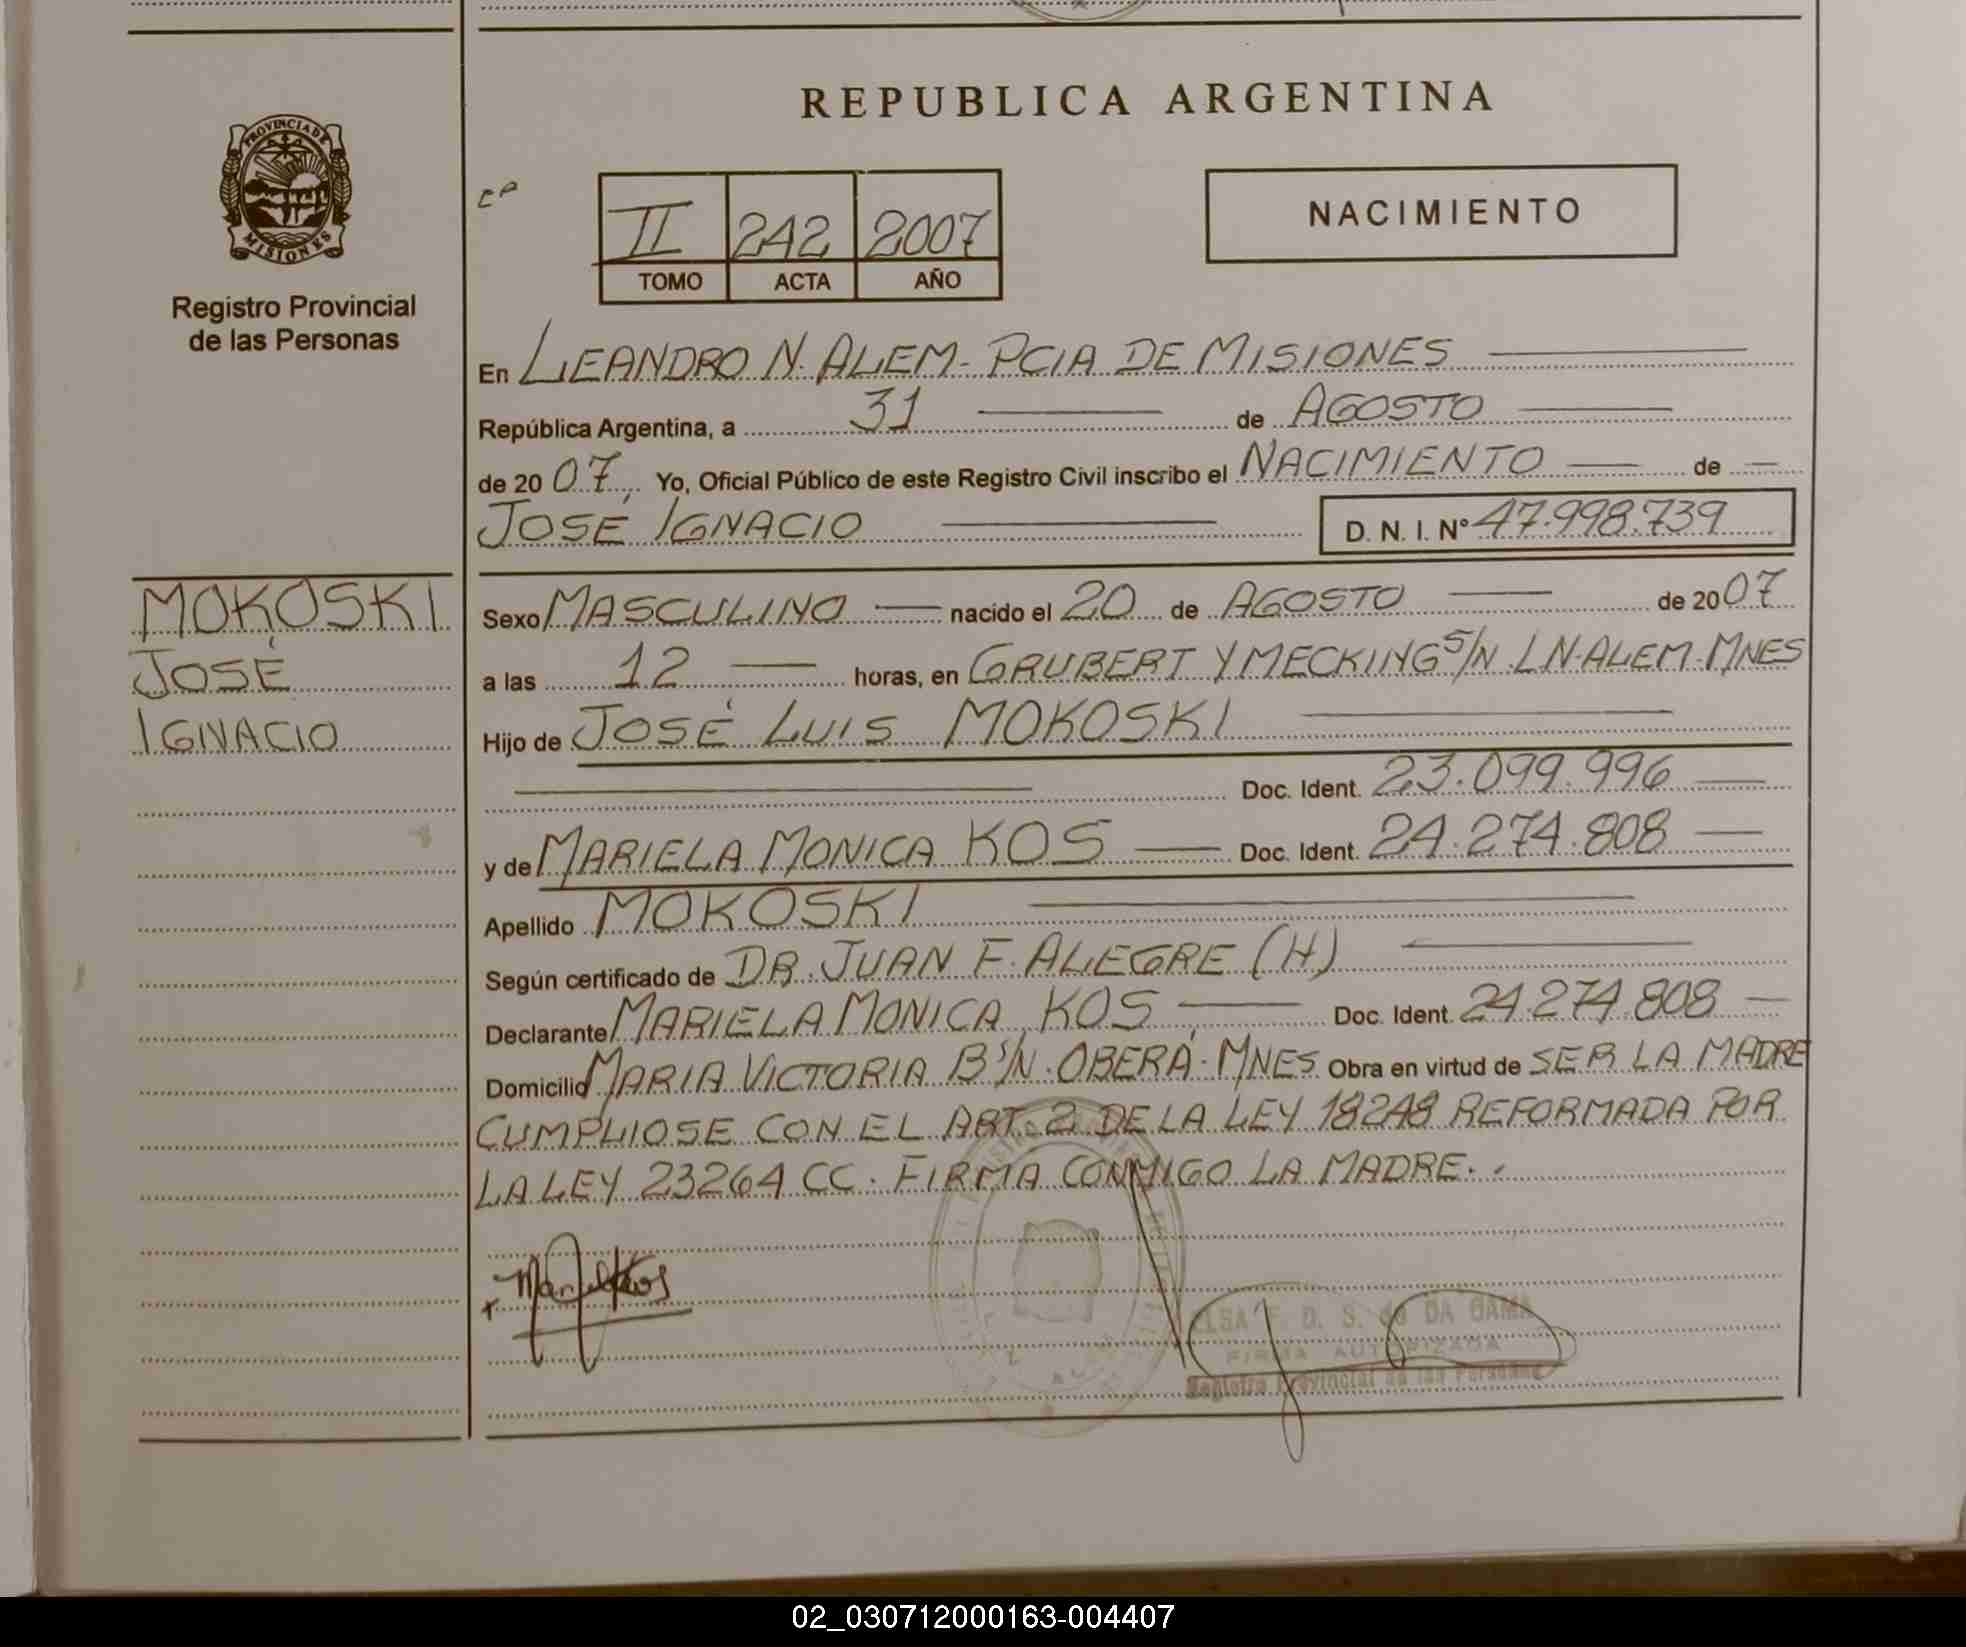 REPUBLICA ARGENTINA
PROVINCIA DE
MISIONES
Registro Provincial
de las Personas
II 242 2007
TOMO ACTA AÑO
NACIMIENTO
En LEANDRO N. ALEM - PCIA DE MISIONES
República Argentina, a 31 de AGOSTO
de 2007, Yo, Oficial Público de este Registro Civil inscribo el NACIMIENTO de
JOSÉ IGNACIO D. N. I. Nº 47.998.739
MOKOSKI
JOSÉ
IGNACIO
Sexo MASCULINO nacido el 20 de AGOSTO de 2007
a las 12 horas, en GRUBERT Y MECKING S/N. L N. ALEM. MNES
Hijo de JOSÉ LUIS MOKOSKI
Doc. Ident. 23.099.996
y de MARIELA MONICA KOS Doc. Ident. 24.274.808
Apellido MOKOSKI
Según certificado de DR. JUAN F. ALEGRE (H)
Declarante MARIELA MONICA KOS Doc. Ident. 24.274.808
Domicilio MARIA VICTORIA B S/N. OBERÁ. MNES Obra en virtud de SER LA MADRE
CUMPLIOSE CON EL ART. 2 DE LA LEY 18248 REFORMADA POR
LA LEY 23264 CC. FIRMA CONMIGO LA MADRE..
ELSA F. D. S. de DA GAMA
FIRMA AUTORIZADA
Registro Provincial de las Personas
02_030712000163-004407